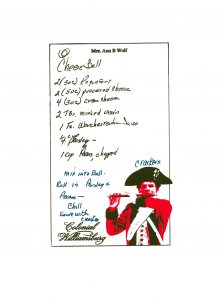 Mrs. Ann B Wolf
Cheese Ball
2 (3oz) Roquefort
2 (5oz) processed cheese
4 (3oz) cream cheese
2 Tbs. minced onion
1 Ts. Worchestershire
1/4 Parsley
1 cup chopped
Crackers
Mix into Ball
Roll in Parsley &
Pecans
Chill
Serve with
Colonial
Williamsburg